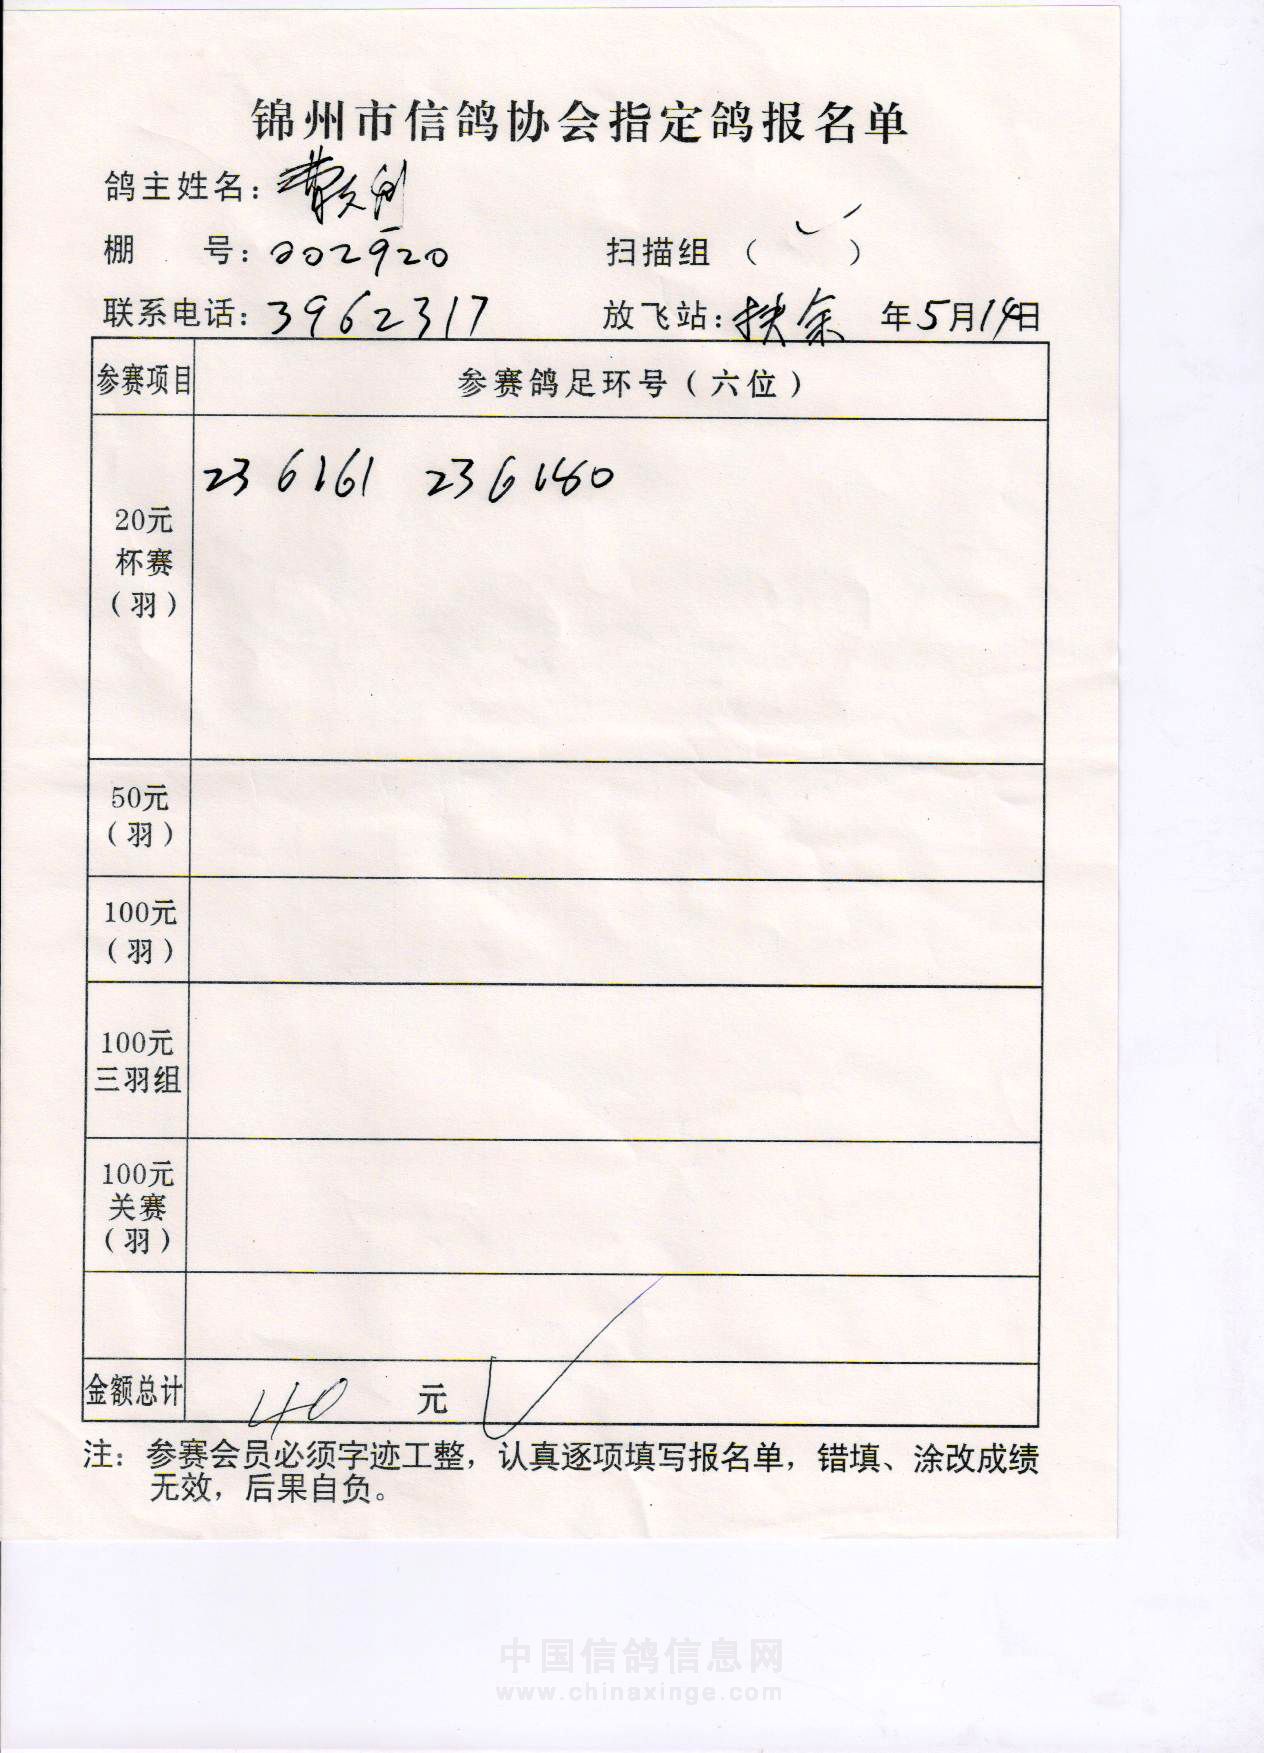 锦州市信鸽协会指定鸽报名单
鸽主姓名：费
棚 号：202920 扫描组（✓）
联系电话：3962317 放飞站：扶余 年5月14日
参赛项目 参赛鸽足环号（六位）
236161 236180
20元
杯赛
（羽）
50元
（羽）
100元
（羽）
100元
三羽组
100元
关赛
（羽）
金额总计 40 元
注：参赛会员必须字迹工整，认真逐项填写报名单，错填、涂改成绩
无效，后果自负。
中国信鸽信息网
www.chinaxinge.com